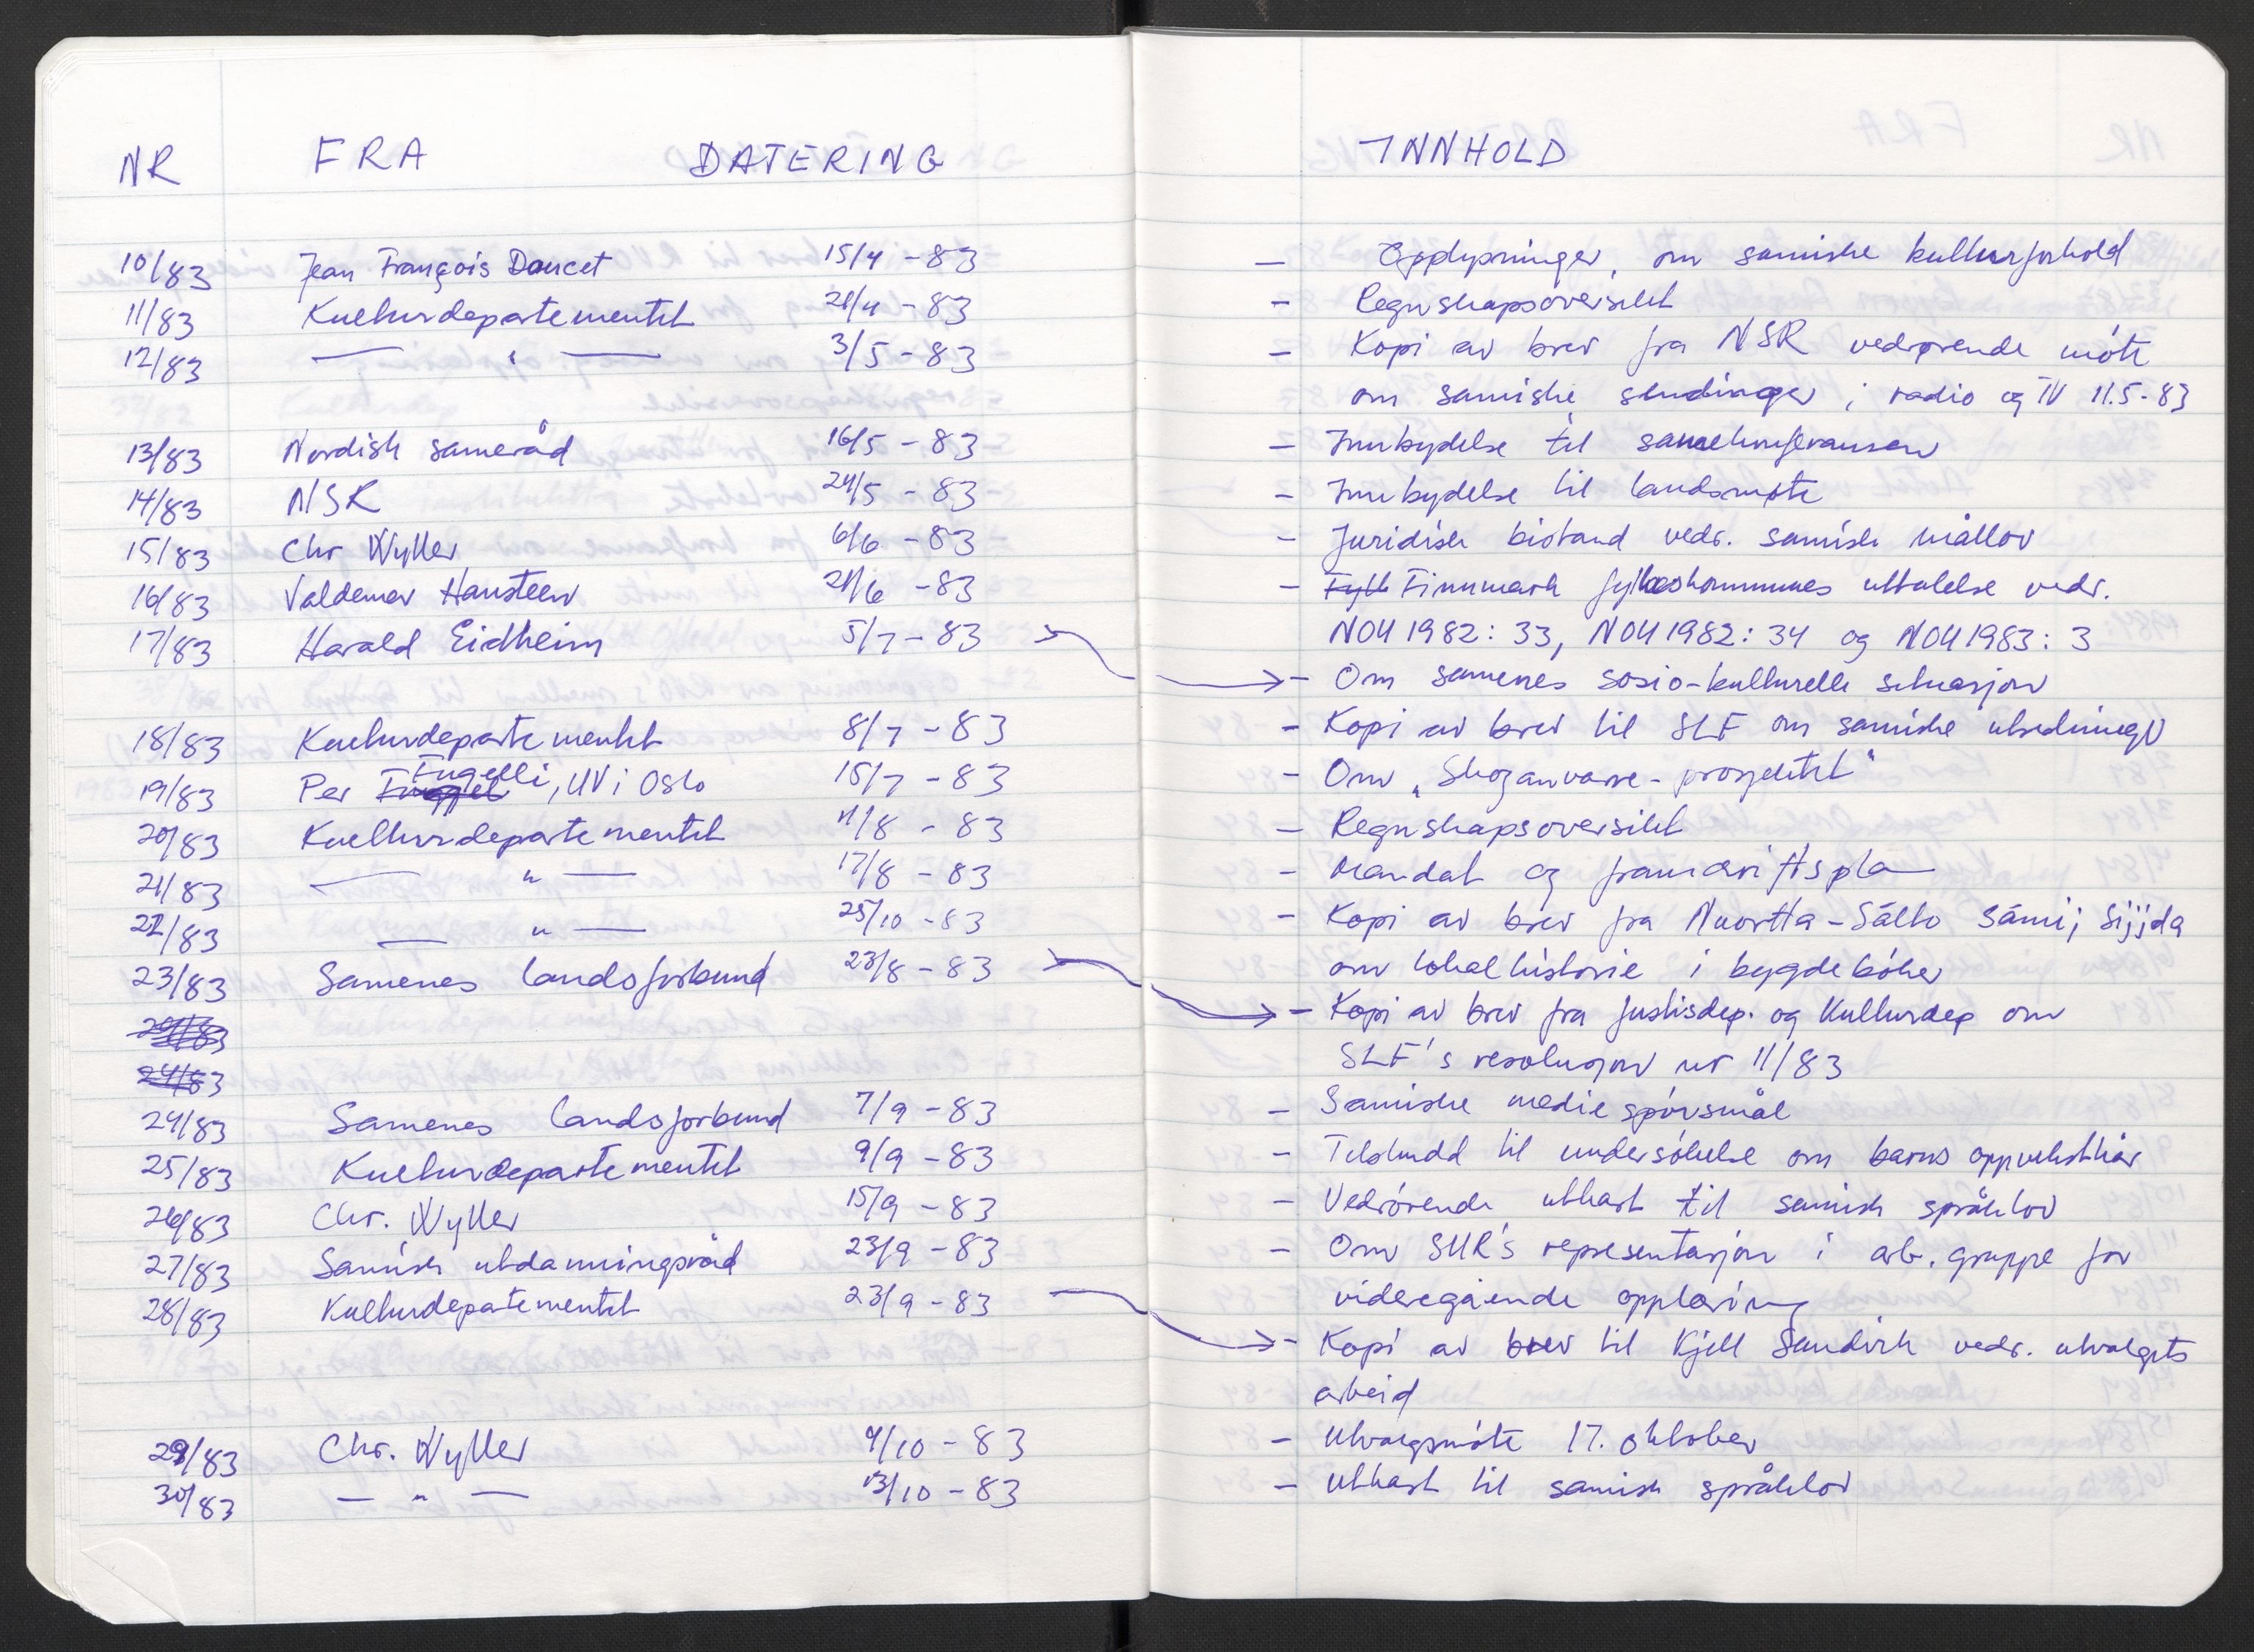 NR FRA DATERING INNHOLD
10/83 Jean François Doucet 15/4 - 83 — Opplysninger, om samiske kulturforhold
11/83 Kulturdepartementet 21/4 - 83 - Regnskapsoversikt
12/83 — " — 3/5 - 83 - Kopi av brev fra NSR vedrørende møte
om samiske sendinger i radio og TV 11.5-83
13/83 Nordisk sameråd 16/5 - 83 - Innbydelse til samekonferansen
14/83 NSR 24/5 - 83 - Innbydelse til landsmøte
15/83 Chr Wyller 6/6 - 83 - Juridisk bistand vedr. samisk mållov
16/83 Valdemar Hansteen 21/6 - 83 - Fylk Finnmark fylkeskommunes uttalelse vedr.
NOU 1982: 33, NOU 1982: 34 og NOU 1983: 3
17/83 Harald Eidheim 5/7 - 83 - Om samenes sosio-kulturelle situasjon
18/83 Kulturdepartementet 8/7 - 83 - Kopi av brev til SLF om samiske utredninger
19/83 Per Fugelli, UV i Oslo 15/7 - 83 - Om „Skoganvarre-prosjektet"
20/83 Kulturdepartementet 11/8 - 83 - Regnskapsoversikt
21/83 — " — 17/8 - 83 - Mandat og framdriftsplan
22/83 — " — 25/10 - 83 - Kopi av brev fra Nuortta-Sálto Sámij Sijjda
om lokalhistorie i bygdebøker
23/83 Samenes landsforbund 23/8 - 83 - Kopi av brev fra Justisdep. og Kulturdep om
24/83
SLF's resolusjon nr 11/83
24/83
24/83 Samenes landsforbund 7/9 - 83 - Samiske mediespørsmål
25/83 Kulturdepartementet 9/9 - 83 - Tilskudd til undersøkelse om barns oppvekstkår
26/83 Chr. Wyller 15/9 - 83 - Vedrørende utkast til samisk språklov
27/83 Samisk utdanningsråd 23/9 - 83 - Om SUR's representasjon i arb. gruppe for
videregående opplæring
28/83 Kulturdepatementet 23/9 - 83 - Kopi av brev til Kjell Sandvik vedr. utvalgets
arbeid
29/83 Chr. Wyller 4/10 - 83 - Utvalgsmøte 17. oktober
30/83 — " — 13/10 - 83 - Utkast til samisk språklov